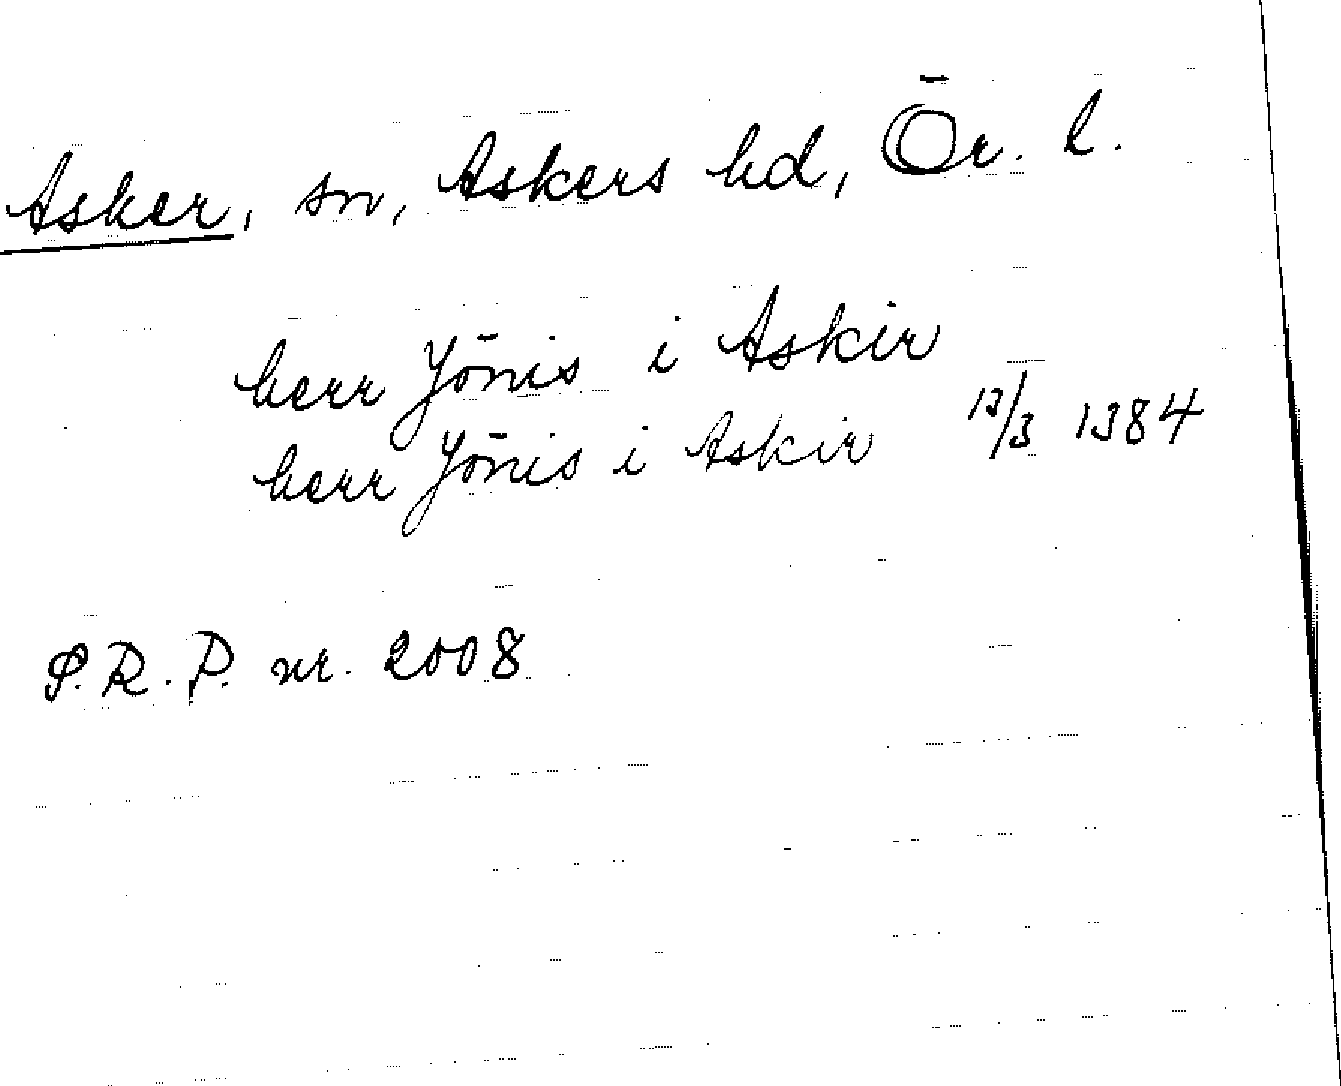 Asker, sn, Askers hd, Ör. l.
herr Jönis i Askir
herr Jönis i Askir 12/3 1384
S.R.P. nr. 2008